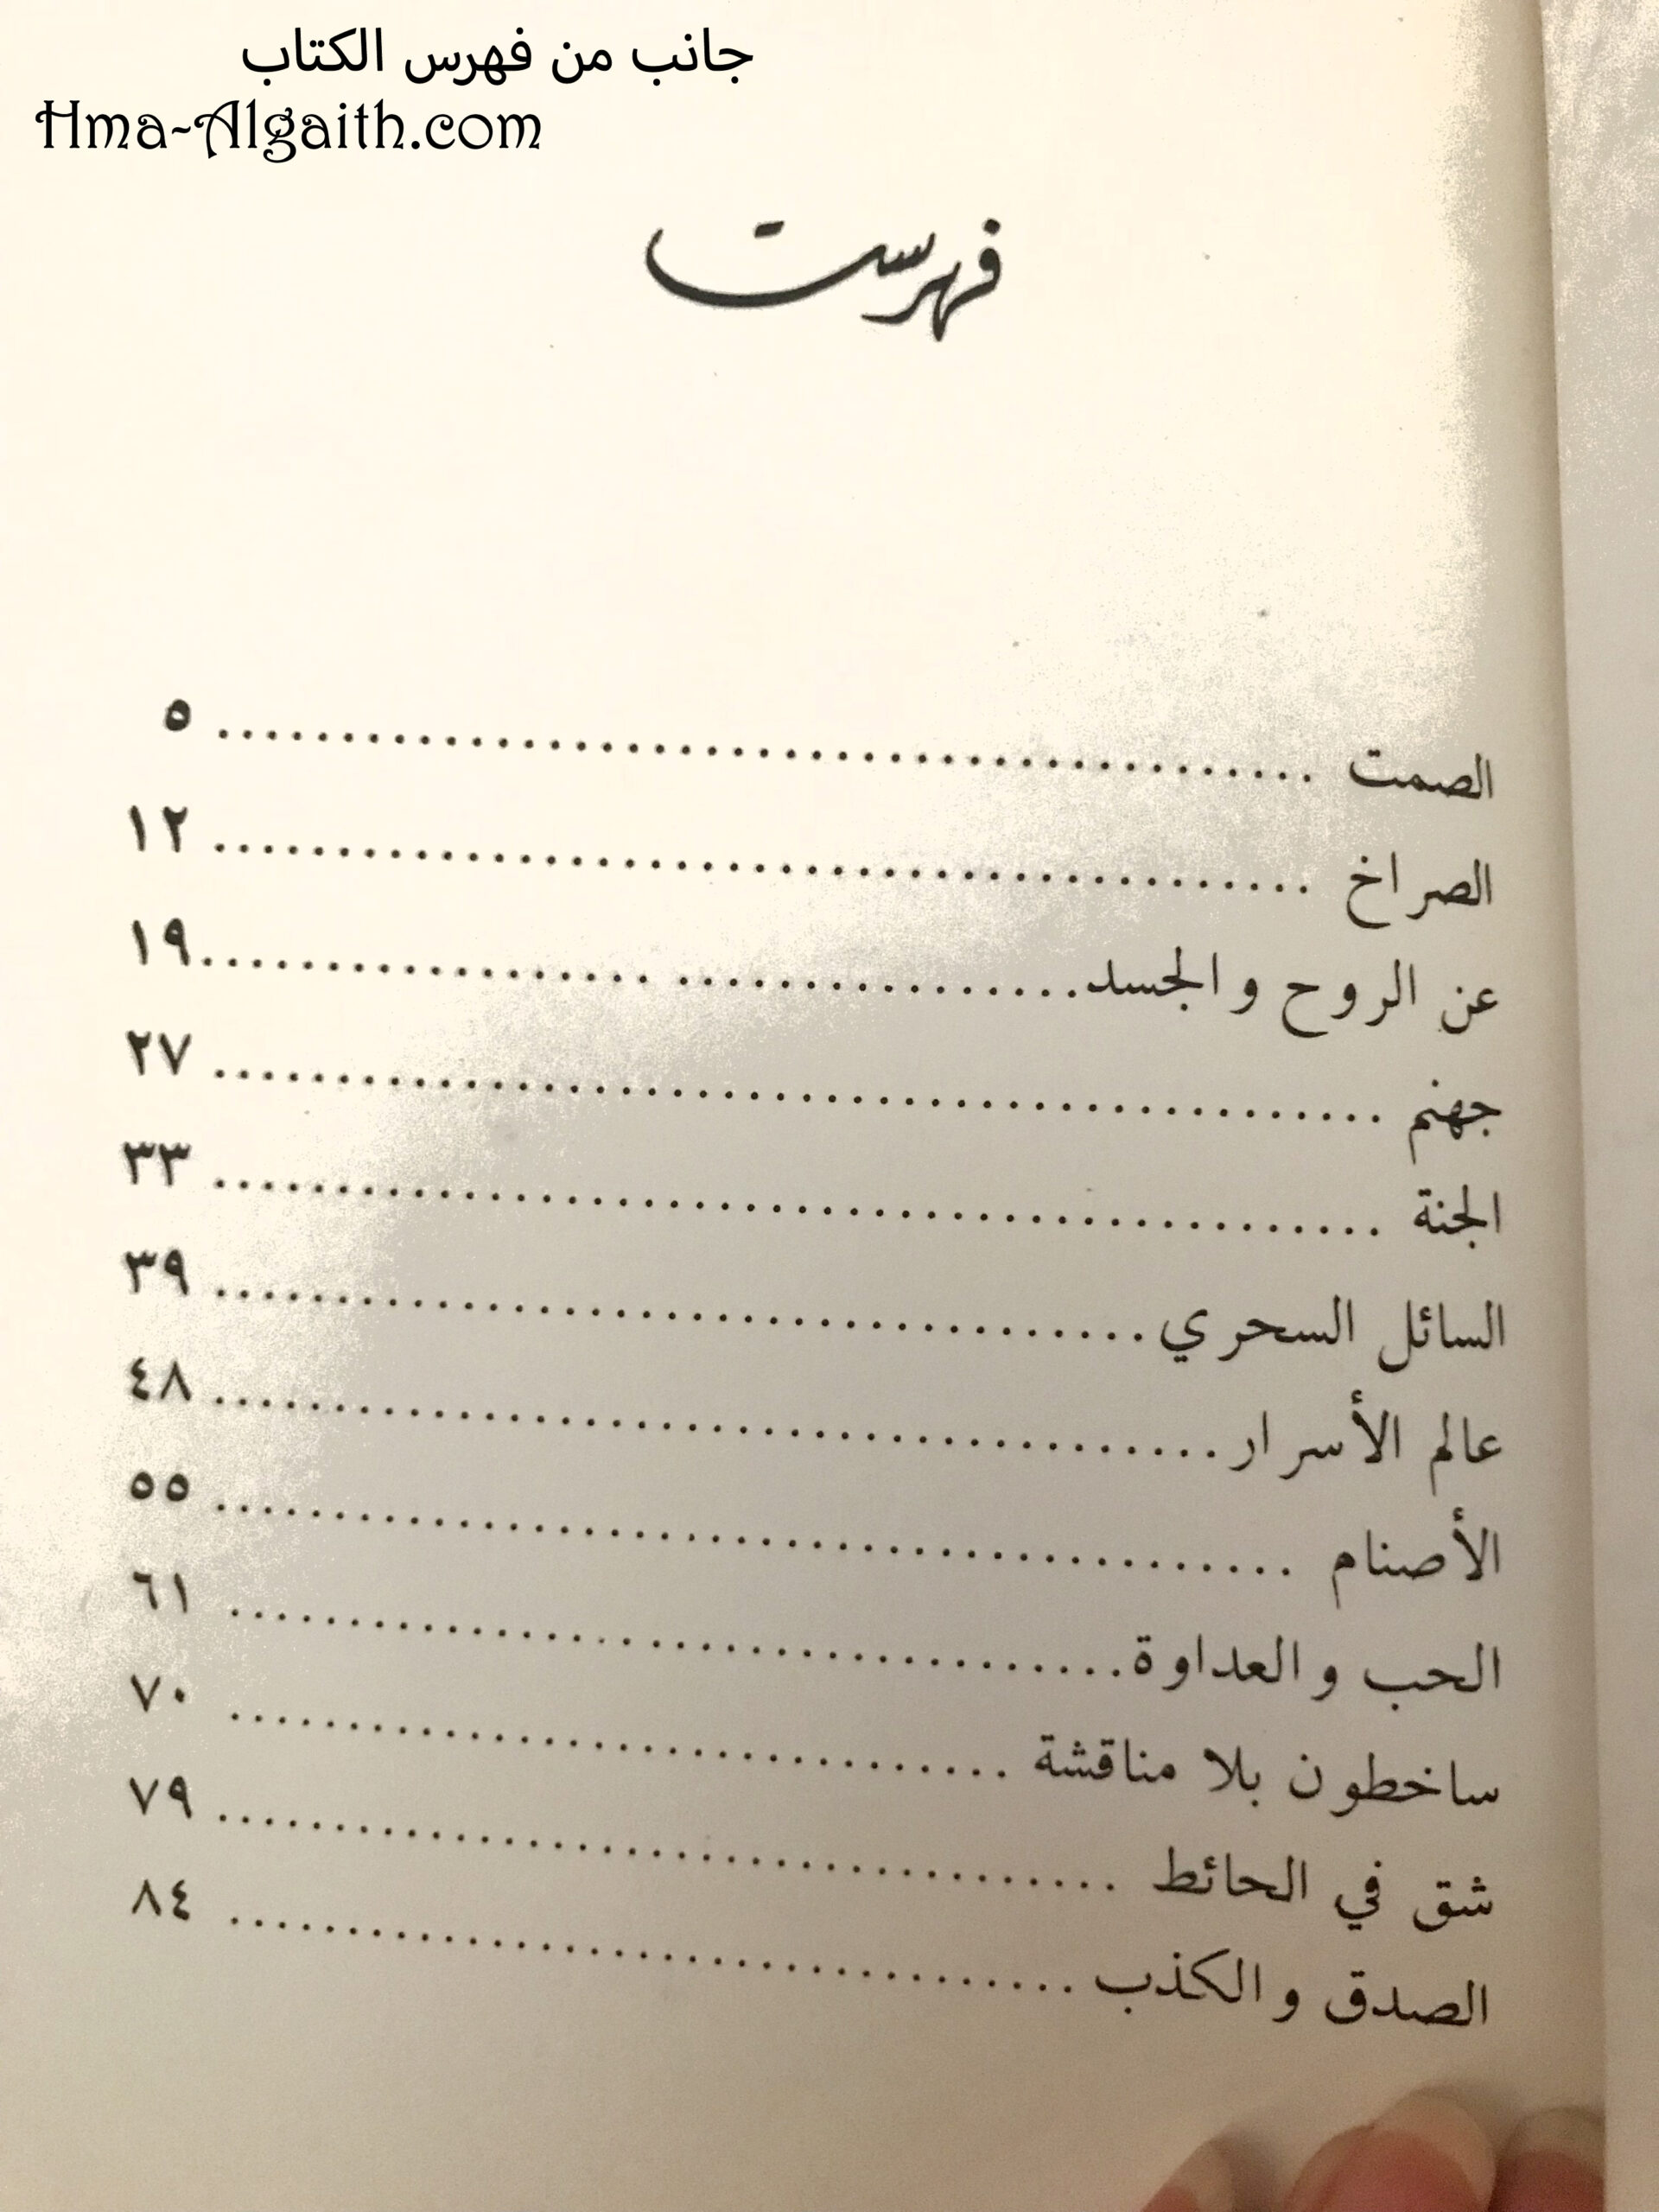 جانب من فهرس الكتاب
Hma-Algaith.com
فهرست
الصمت ........................................... ٥
الصراخ ........................................... ١٢
عن الروح و الجسد.................................. ١٩
جهنم .............................................. ٢٧
الجنة .............................................. ٣٣
السائل السحري..................................... ٣٩
عالم الأسرار........................................ ٤٨
الأصنام ........................................... ٥٥
الحب و العداوة.................................... ٦١
ساخطون بلا مناقشة ............................... ٧٠
شق في الحائط .................................... ٧٩
الصدق و الكذب................................... ٨٤